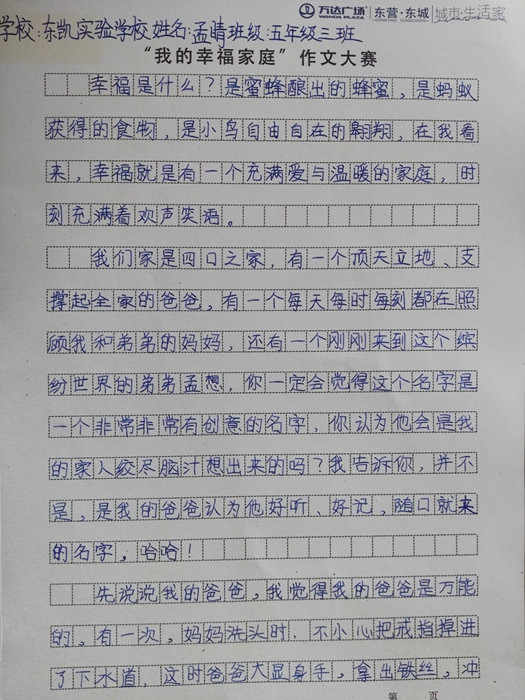 万达广场 WANDA PLAZA 东营·东城 城市·生活家
学校:东凯实验学校姓名:孟晴班级:五年级三班
“我的幸福家庭”作文大赛
幸福是什么？是蜜蜂酿出的蜂蜜，是蚂蚁
获得的食物，是小鸟自由自在的翱翔，在我看
来，幸福就是有一个充满爱与温暖的家庭，时
刻充满着欢声笑语。
我们家是四口之家，有一个顶天立地、支
撑起全家的爸爸，有一个每天每时每刻都在照
顾我和弟弟的妈妈，还有一个刚刚来到这个缤
纷世界的弟弟孟想，你一定会觉得这个名字是
一个非常非常有创意的名字，你认为他会是我
的家人绞尽脑汁想出来的吗？我告诉你，并不
是，是我的爸爸认为他好听、好记，随口就来
的名字，哈哈！
先说说我的爸爸，我觉得我的爸爸是万能
的。有一次，妈妈洗头时，不小心把戒指掉进
了下水道，这时爸爸大显身手，拿出铁丝，冲
第 页